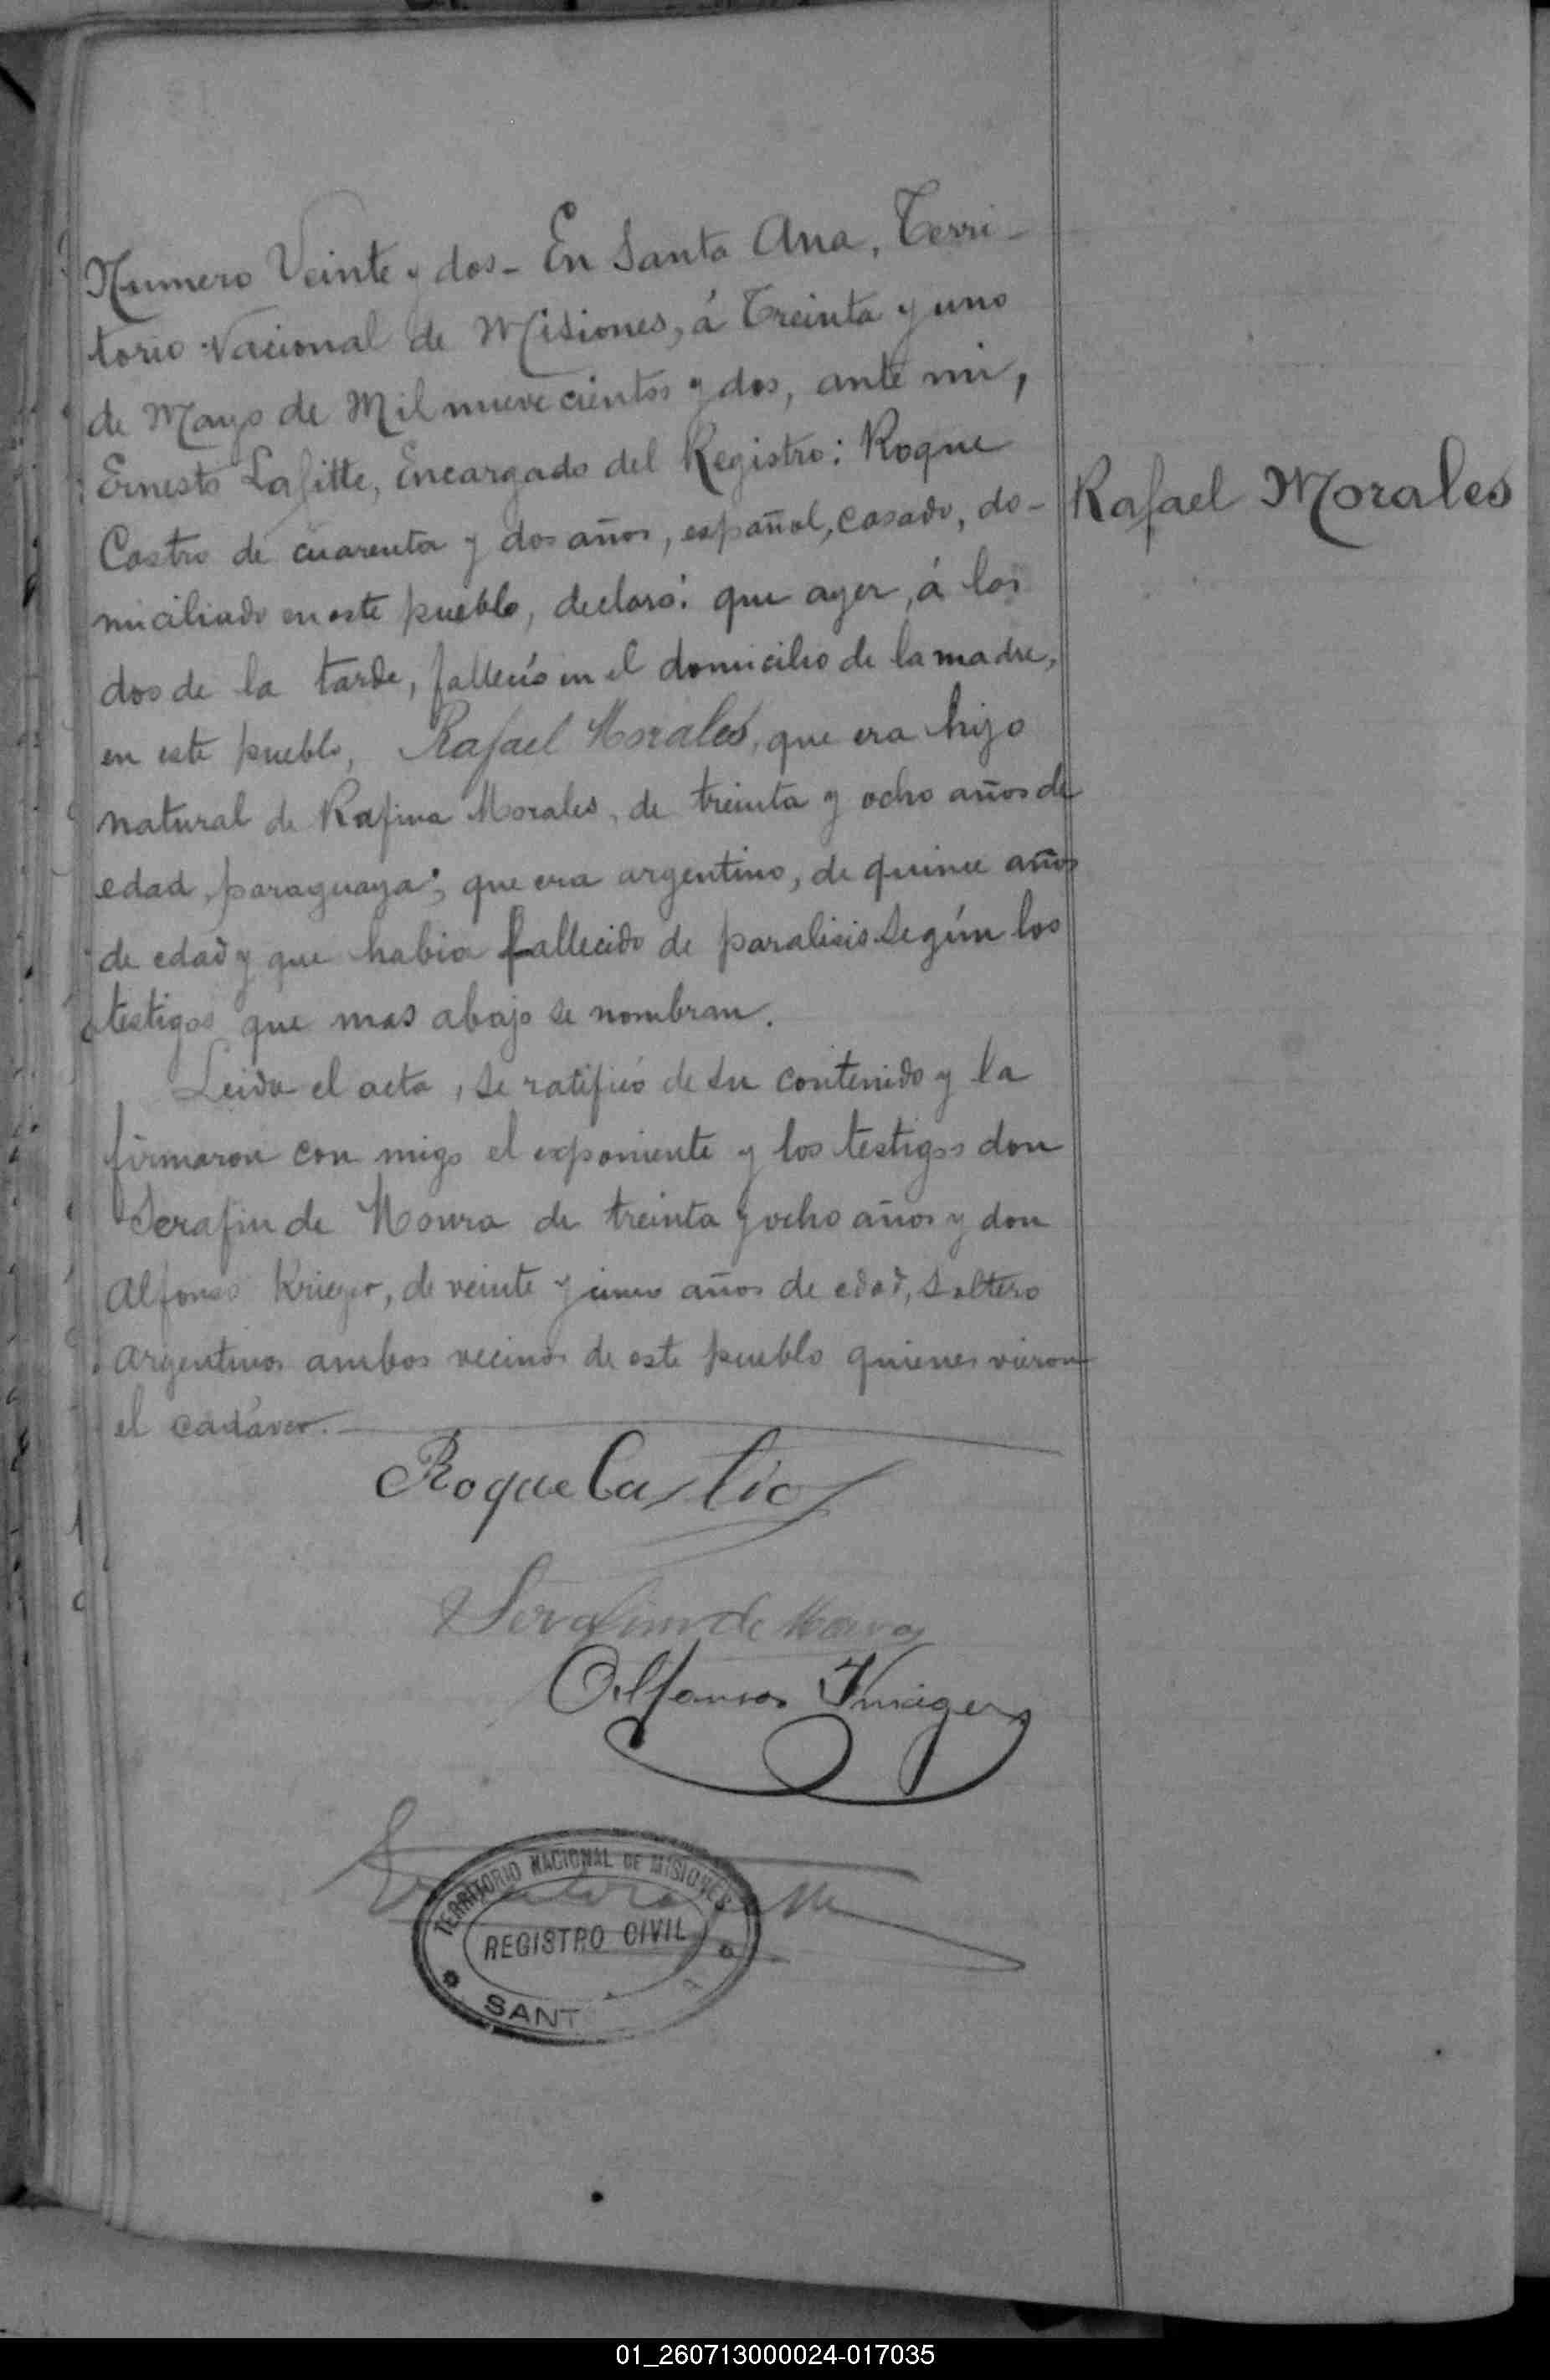 Numero Veinte y dos - En Santa Ana, Terri-
torio Nacional de Misiones, á Treinta y uno
de Mayo de Mil nueve cientos y dos, ante mi,
Ernesto Lafitte, Encargado del Registro: Roque
Castro de cuarenta y dos años, español, casado, do-
miciliado en este pueblo, declaró: que ayer, á las
dos de la tarde, falleció en el domicilio de la madre,
en este pueblo, Rafael Morales, que era hijo
natural de Rafina Morales, de treinta y ocho años de
edad, paraguaya; que era argentino, de quince años
de edad y que habia fallecido de paralisis según los
testigos que mas abajo se nombran.
Leida el acta, se ratificó de su contenido y la
firmaron con migo el exponiente y los testigos don
Serafin de Moura de treinta y ocho años y don
Alfonso Krieger, de veinte y cinco años de edad, soltero
argentinos ambos vecinos de este pueblo quienes vieron
el cadáver.
Rafael Morales
Roque Castro
Serafim de Moura
Alfonso Krieger
TERRITORIO NACIONAL DE MISIONES
REGISTRO CIVIL
SANT
01_260713000024-017035